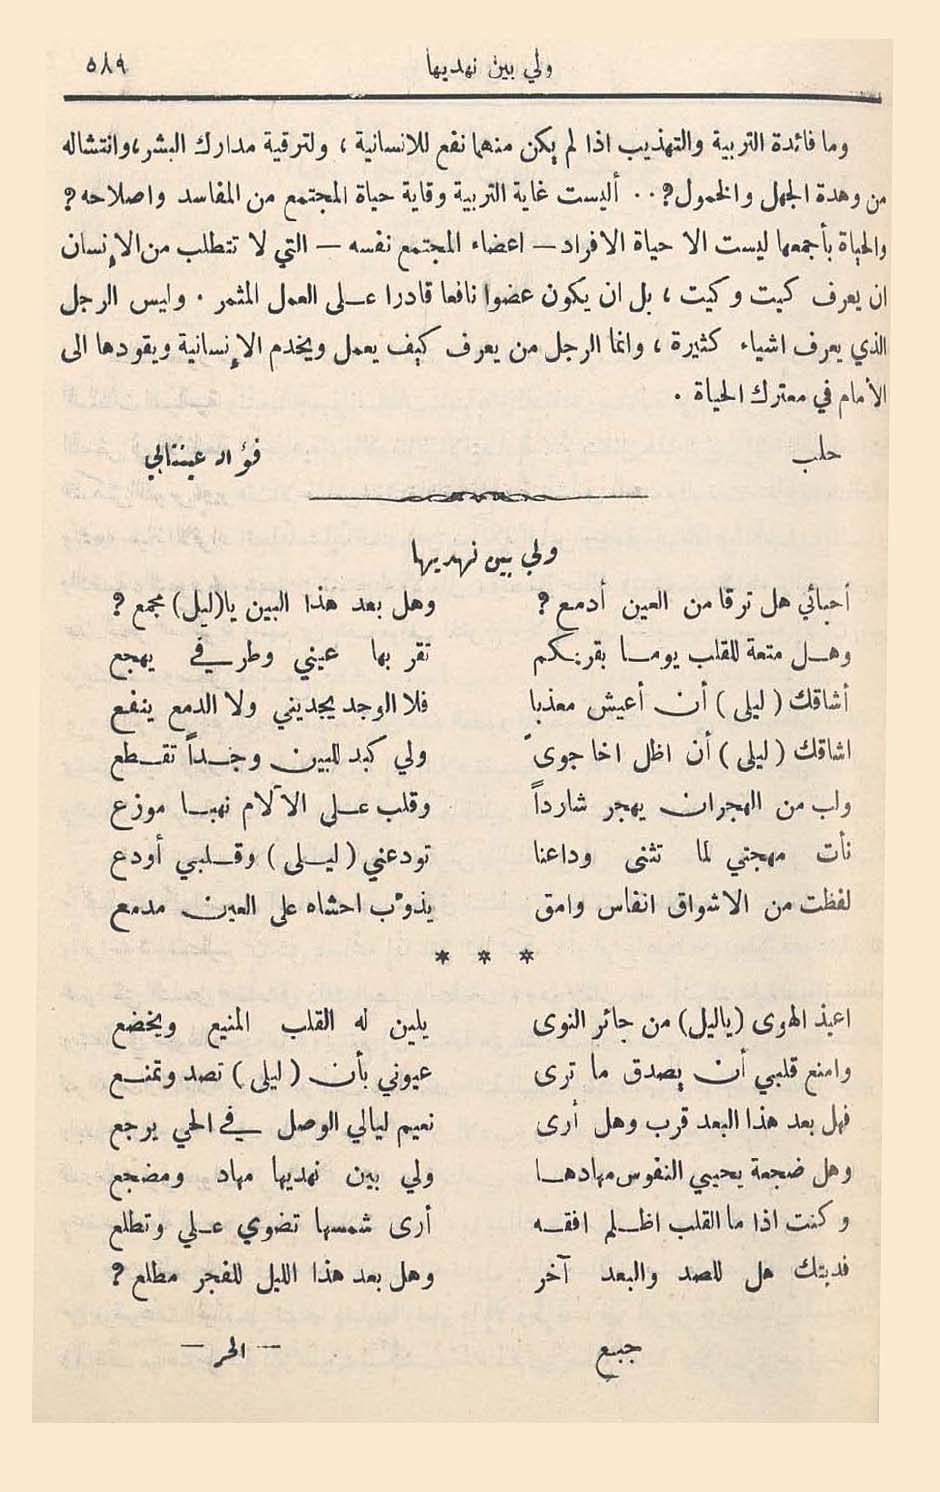 ولي بين نهديها ٥٨٩
وما فائدة التربية والتهذيب اذا لم يكن منهما نفع للانسانية ، ولترقية مدارك البشر، وانتشاله
من وهدة الجهل والخمول؟ ٠٠ أليست غاية التربية وقاية حياة المجتمع من المفاسد واصلاحه ؟
والحياة بأجمعها ليست الا حياة الافراد – اعضاء المجتمع نفسه – التي لا تتطلب من الإنسان
ان يعرف كيت وكيت ، بل ان يكون عضوا نافعا قادرا على العمل المثمر . وليس الرجل
الذي يعرف اشياء كثيرة ، وانما الرجل من يعرف كيف يعمل ويخدم الإنسانية ويقودها الى
الأمام في معترك الحياة .
حلب فؤاد عينتابي
ولي بين نهديها
أحبائي هل ترقا من العين أدمع ؟ وهل بعد هذا البين يا(ليل) مجمع ؟
وهل متعة للقلب يوما بقربكم تقر بها عيني وطرفي يهجع
أشاقك ( ليلى ) أن أعيش معذبا فلا الوجد يجديني ولا الدمع ينفع
اشاقك ( ليلى ) أن اظل اخا جوى ولي كبد للبين وجداً تقطع
ولب من الهجران يهجر شارداً وقلب على الآلام نهبا موزع
نأت مهجتي لما تثنى وداعنا تودعني ( ليلى ) وقلبي أودع
لفظت من الاشواق انفاس وامق يذوّب احشاه على العين مدمع
* * *
اعيذ الهوى (ياليل) من جائر النوى يلين له القلب المنيع ويخضع
وامنع قلبي أن يصدق ما ترى عيوني بأن ( ليلى ) تصد وتمنع
فهل بعد هذا البعد قرب وهل أرى نعيم ليالي الوصل في الحي يرجع
وهل ضجعة يحيي النفوس مهادها ولي بين نهديها مهاد ومضجع
وكنت اذا ما القلب اظلم افقه أرى شمسها تضوي علي وتطلع
فديتك هل للصد والبعد آخر وهل بعد هذا الليل للفجر مطلع ؟
جبع – الحر –